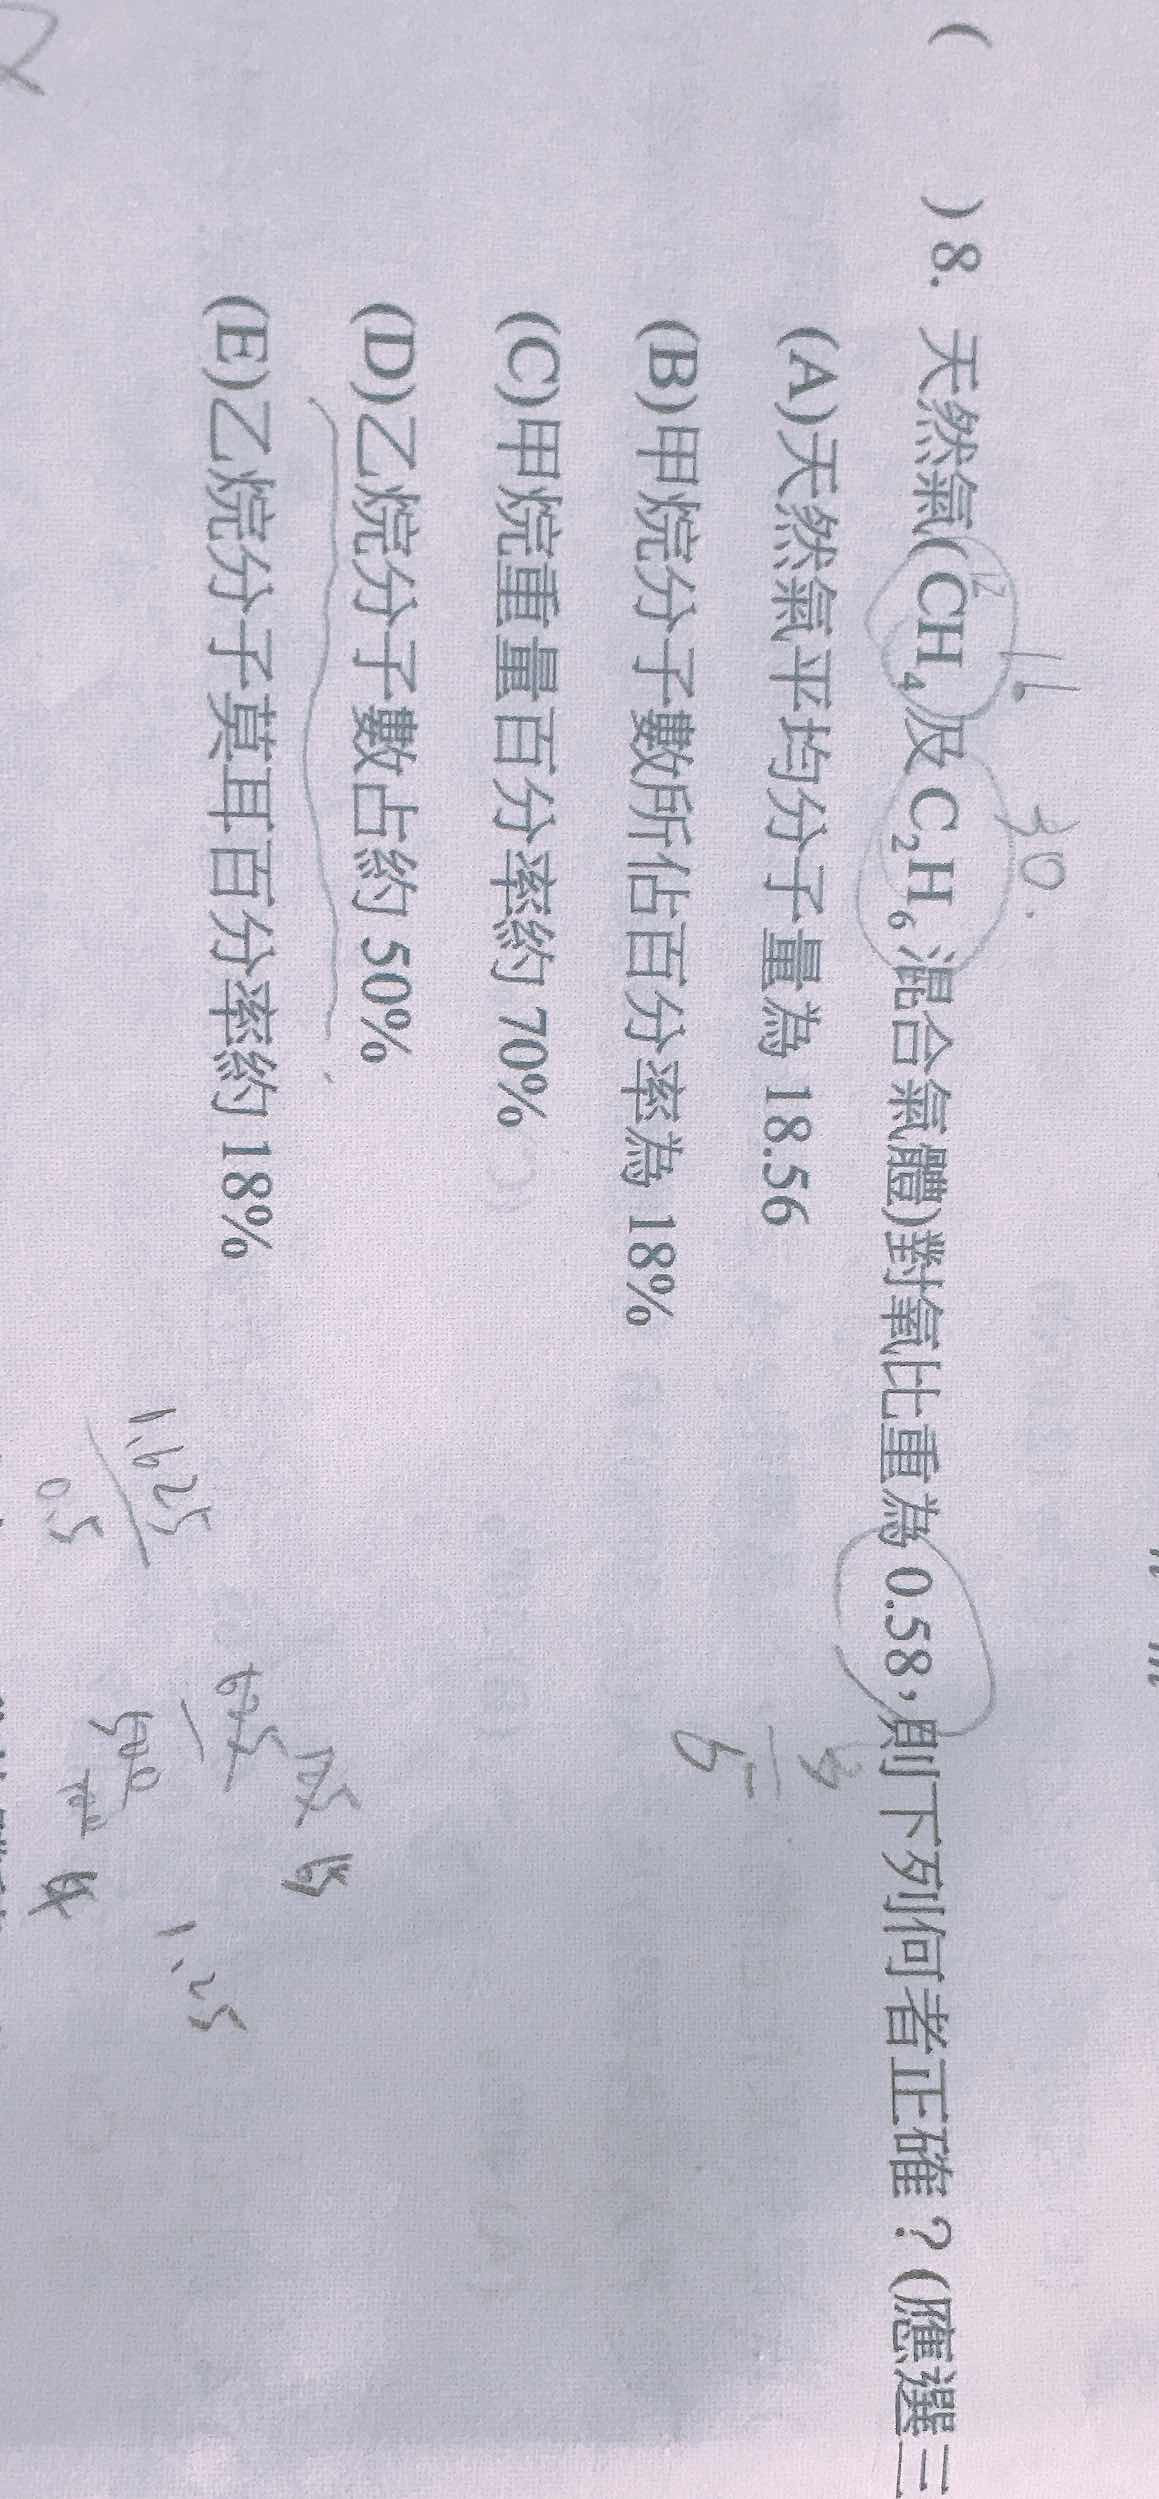 ( ) 8. 天然氣(CH₄及 C₂H₆混合氣體)對氧比重為 0.58,則下列何者正確?(應選三
(A)天然氣平均分子量為 18.56
(B)甲烷分子數所佔百分率為 18%
(C)甲烷重量百分率約 70%
(D)乙烷分子數占約 50%
(E)乙烷分子莫耳百分率約 18%
12
16
30.
0.5
1.25